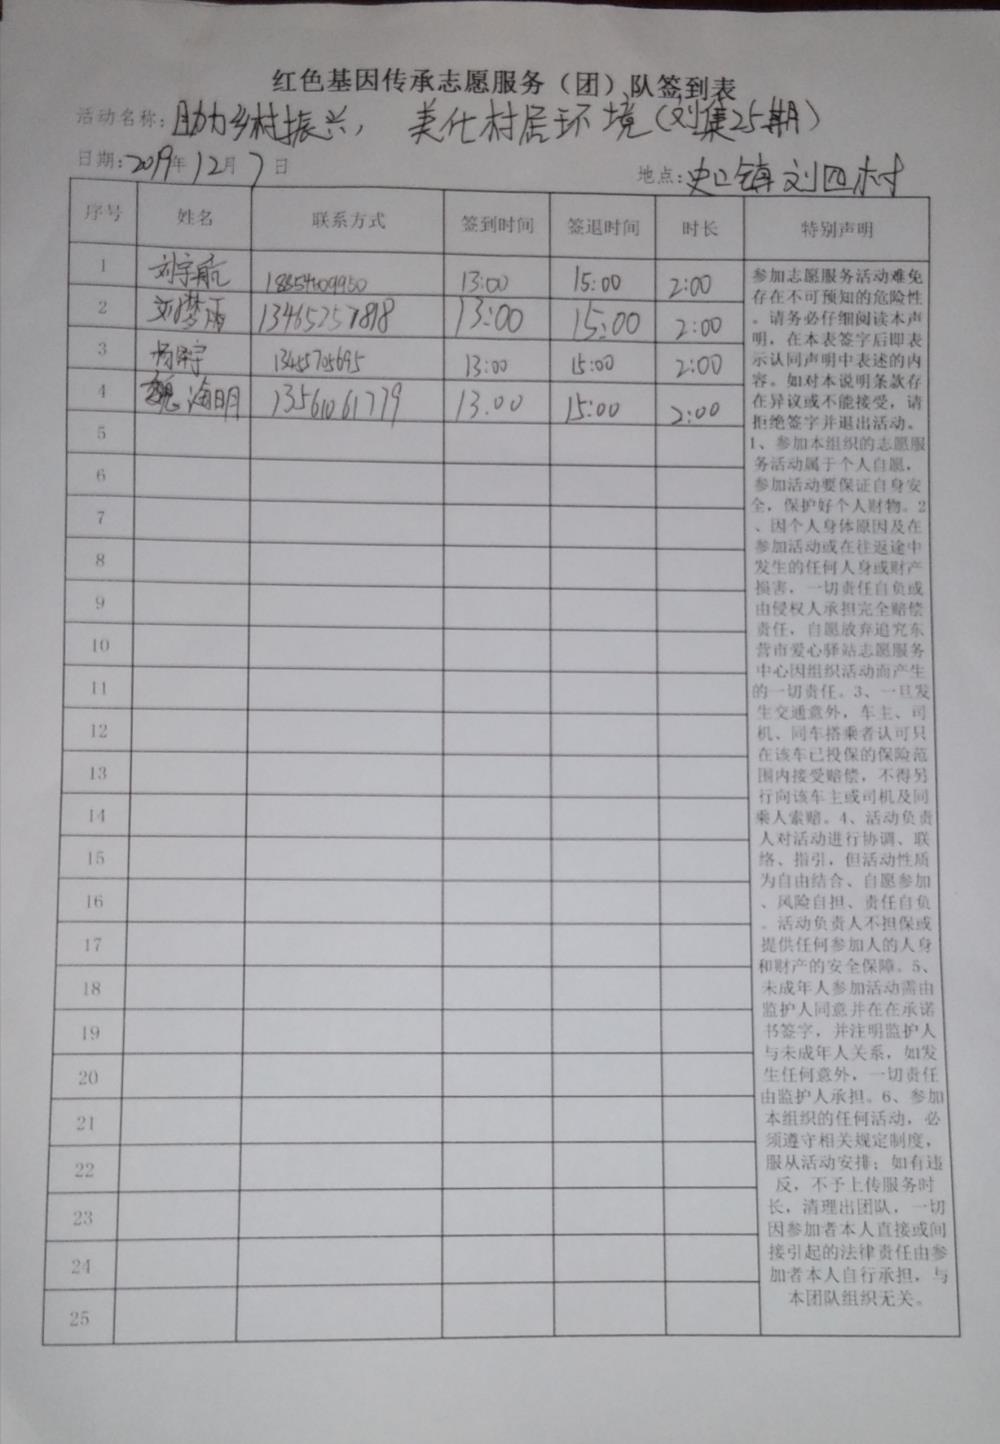 红色基因传承志愿服务（团）队签到表
活动名称：助力乡村振兴，美化村居环境（刘集25期）
日期：2019年12月7日 地点：史口镇刘四村
序号 姓名 联系方式 签到时间 签退时间 时长 特别声明
1 刘宇航 18854609950 13:00 15:00 2:00
2 刘梦雨 13465257818 13:00 15:00 2:00
3 13455705695 13:00 15:00 2:00
4 魏海明 13561061779 13:00 15:00 2:00
5
6
7
8
9
10
11
12
13
14
15
16
17
18
19
20
21
22
23
24
25
参加志愿服务活动难免
存在不可预知的危险性
。请务必仔细阅读本声
明，在本表签字后即表
示认同声明中表述的内
容。如对本说明条款存
在异议或不能接受，请
拒绝签字并退出活动。
1、参加本组织的志愿服
务活动属于个人自愿，
参加活动要保证自身安
全，保护好个人财物。2
、因个人身体原因及在
参加活动或在往返途中
发生的任何人身或财产
损害，一切责任自负或
由侵权人承担完全赔偿
责任，自愿放弃追究东
营市爱心驿站志愿服务
中心因组织活动而产生
的一切责任。3、一旦发
生交通意外，车主、司
机、同车搭乘者认可只
在该车已投保的保险范
围内接受赔偿，不得另
行向该车主或司机及同
乘人索赔。4、活动负责
人对活动进行协调、联
络、指引，但活动性质
为自由结合、自愿参加
、风险自担、责任自负
。活动负责人不担保或
提供任何参加人的人身
和财产的安全保障。5、
未成年人参加活动需由
监护人同意并在在承诺
书签字，并注明监护人
与未成年人关系，如发
生任何意外，一切责任
由监护人承担。6、参加
本组织的任何活动，必
须遵守相关规定制度，
服从活动安排；如有违
反，不予上传服务时
长，清理出团队，一切
因参加者本人直接或间
接引起的法律责任由参
加者本人自行承担，与
本团队组织无关。